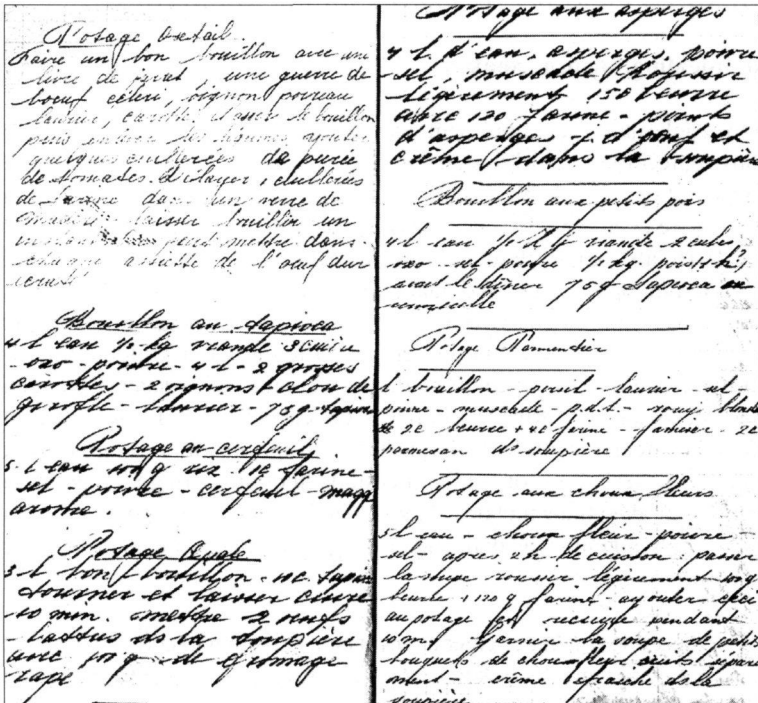 Potage Oxtail
Faire un bon bouillon avec une
livre de jarret, une queue de
boeuf céleri, oignon poireau
laurier, carotte. Passer le bouillon
puis
quelques cuillerées de purée
de tomates. Délayer 2 cuillerées
de farine dans un verre de
madère laisser bouillir un
instant peut mettre dans
chaque assiette de l'oeuf dur
Bouillon au tapioca
4 l eau ½ kg viande 3 cubes
oxo - poivre - 2 grosses
carottes - 2 oignons - clou de
girofle - laurier - 75 g tapioca
Potage au cerfeuil
5 l eau 100 g riz farine -
sel - poivre - cerfeuil - maggi
arome.
Potage
3 l bon bouillon tapioca
tourner et laisser cuire
10 min. mettre 2 oeufs
battus ds la soupière
avec 100 g de fromage
rapé
Potage aux asperges
4 l d'eau, asperges, poivre
sel, muscade Roussir
légèrement 150 beurre
avec 120 farine - pointes
d'asperges d'oeuf et
crème dans la soupière
Bouillon aux petits pois
4 l eau ½ viande 2 cubes
oxo - sel - poivre ½ kg pois
avant le dîner 75 g tapioca ou
vermicelle
Potage Parmentier
l bouillon - persil - laurier - sel -
poivre - muscade - p.d.t. - roux blond
beurre + farine -
parmesan ds soupière
Potage aux choux fleurs
5 l eau - choux fleur - poivre -
sel - après 2 h de cuisson : passer
la soupe roussir légèrement 100 g
beurre + 120 g farine - ajouter ceci
au potage pendant
10 m garnir la soupe de petits
bouquets de choufleur cuits séparé
ment - crème fraîche ds la
soupière